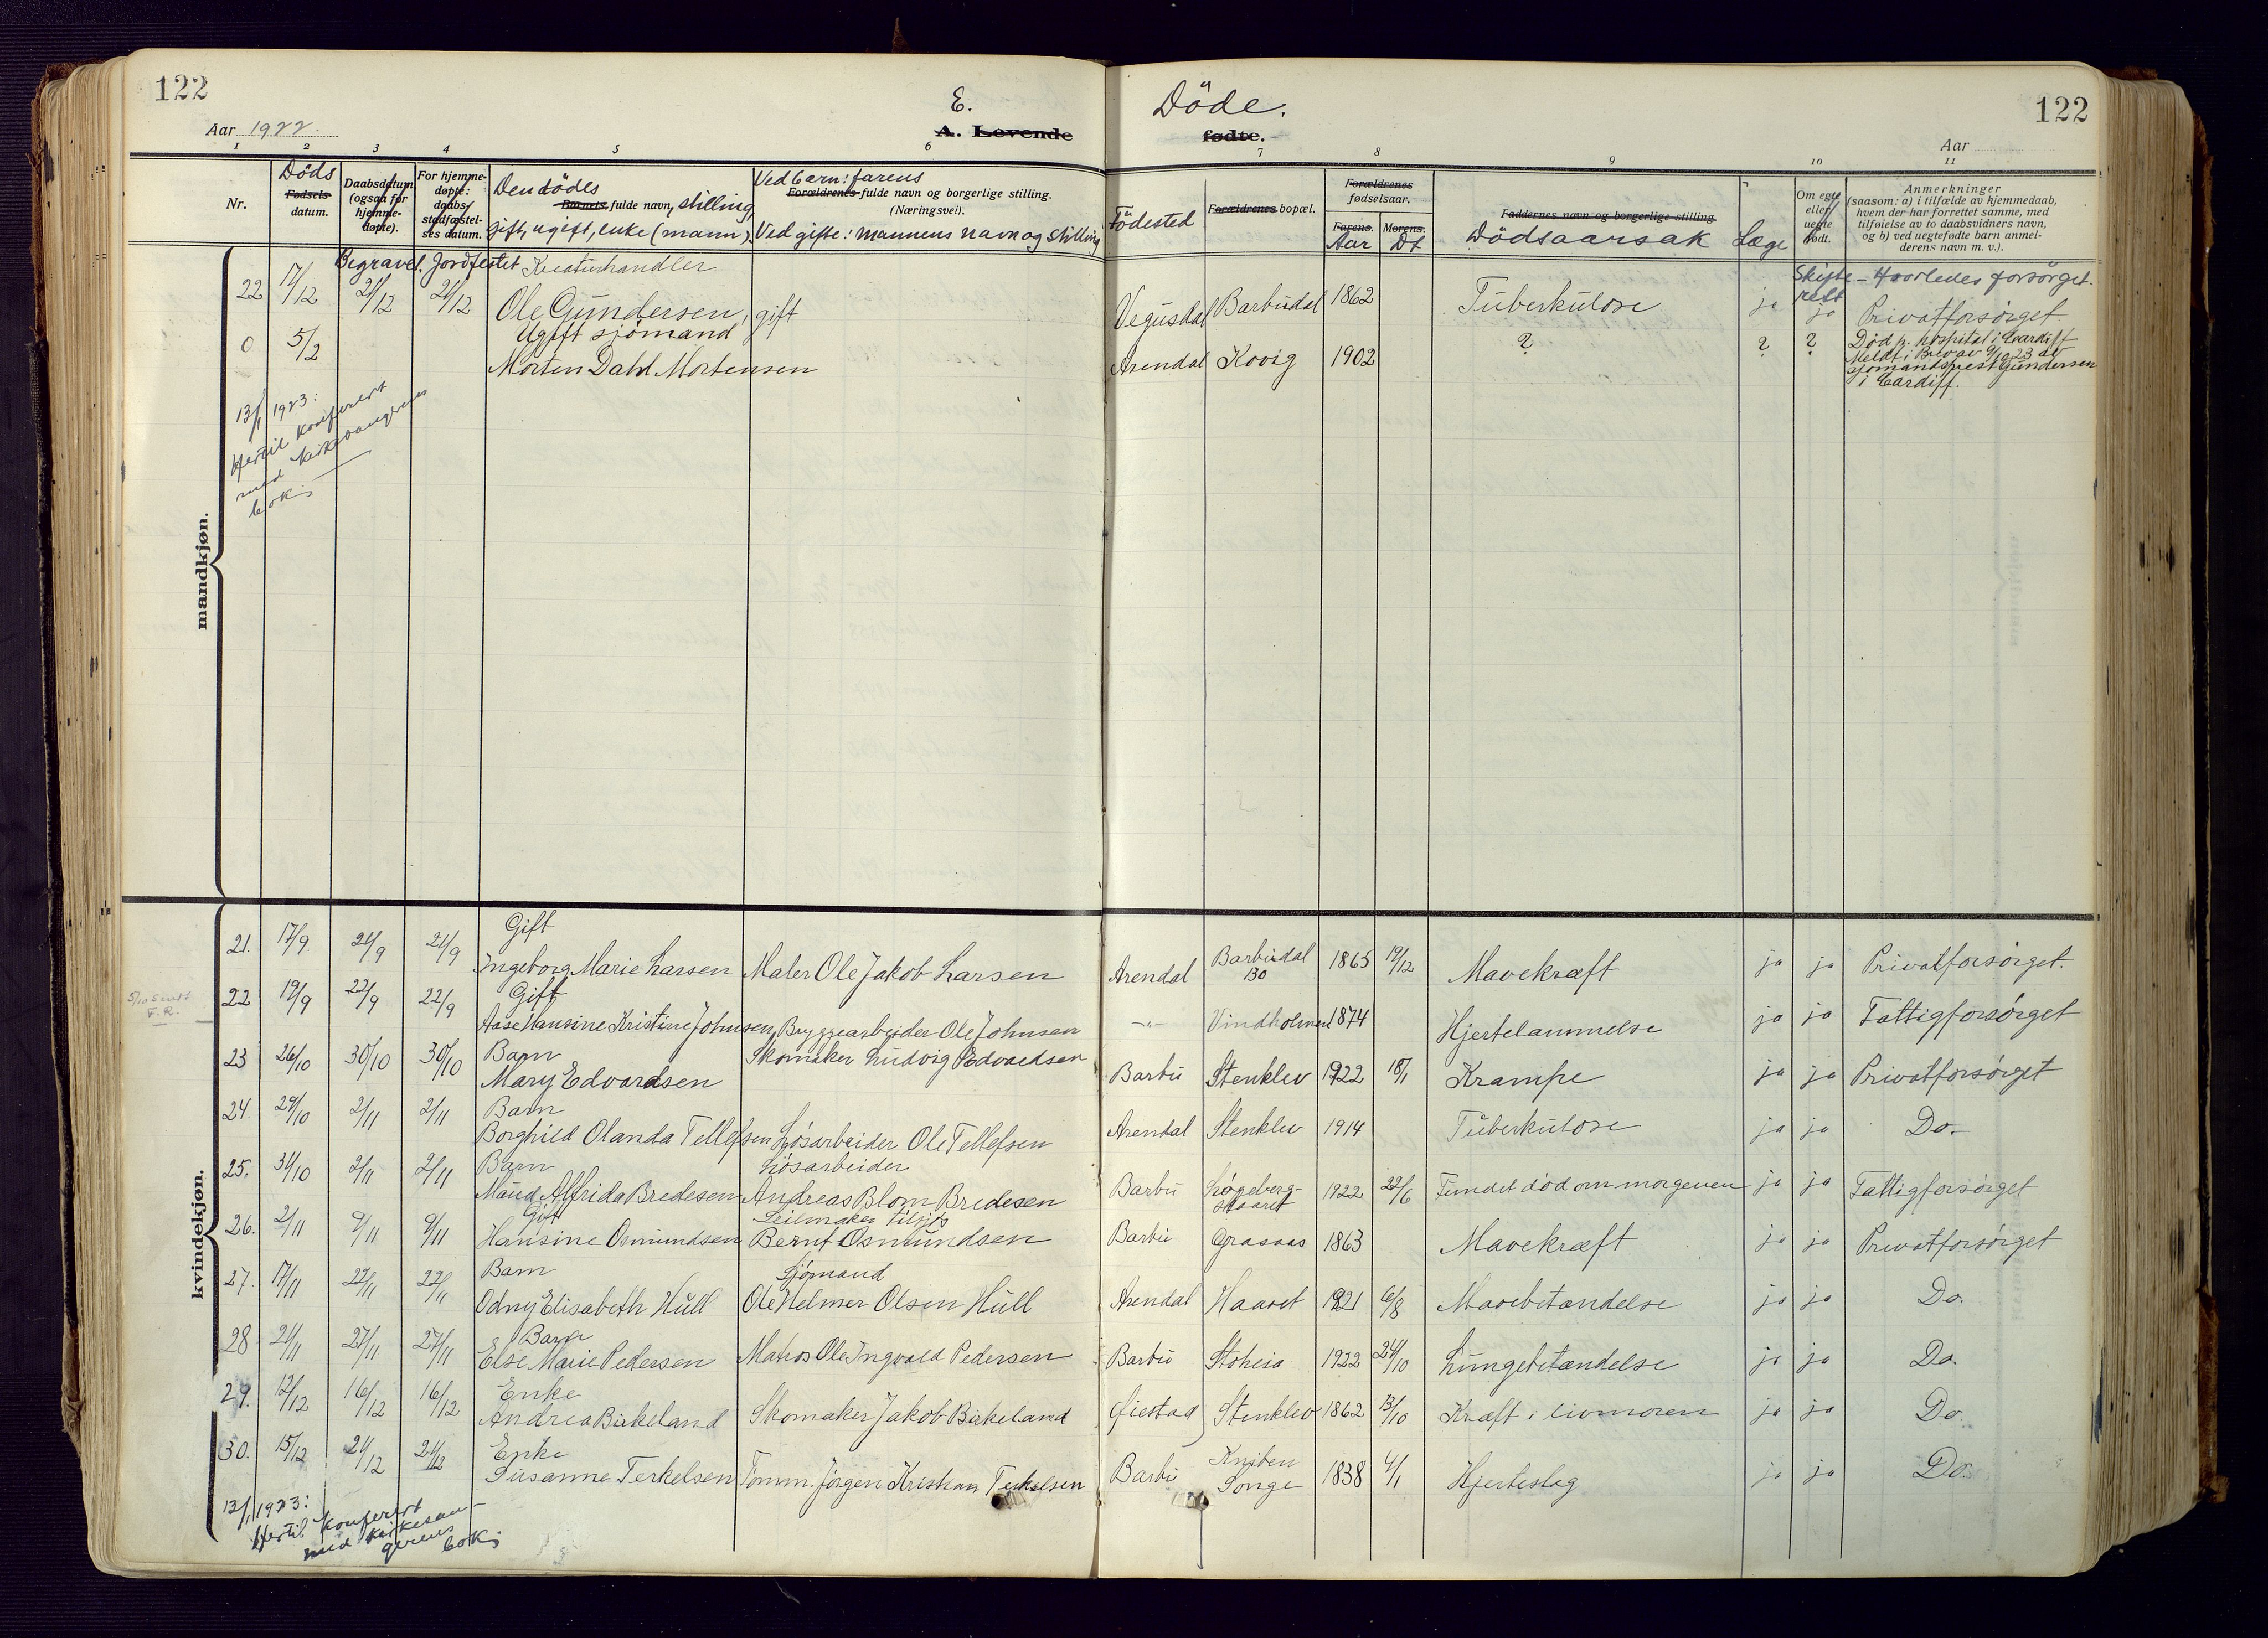 122
Aar 1922.
E.
A. Levende
Döde.
fødte.
122
Aar
1 2 3 4 5 6 7 8 9 10 11
Nr.
Döds
Fødsels-
datum.
Daabsdatum
(ogsaa for
hjemme-
døpte).
For hjemme-
døpte:
daabs/
stadfæstel-
ses datum.
Den dödes
Barnets fulde navn, stilling,
gift, ugift, enke (mann).
Ved barn: farens
Forældrenes fulde navn og borgerlige stilling.
(Næringsvei).
Ved gifte: mannens navn og stilling
Födested
Forældrenes bopæl.
Forældrenes
fødselsaar.
Farens. Morens.
Aar Dt
Faddernes navn og borgerlige stilling
Dödsaarsak
Læge
Om egte
eller
uegte
født.
Anmerkninger
(saasom: a) i tilfælde av hjemmedaab,
hvem der har forrettet samme, med
tilføielse av to daabsvidners navn,
og b) ved uegtefødte barn anmel-
derens navn m. v.).
Begravet. Jordfestet
Skifte
rett
- Hvorledes forsörget.
mandkjøn.
22 17/12 21/12 21/12 Kreaturhandler
Ole Gundersen, gift Vegusdal Barbudal 1862 Tuberkulose ja ja Privatforsörget
0 5/2 Ugift sjömand
Morten Dahl Mortensen Arendal Kovig 1902 ? ? ? Död p. hospital i Cardiff
Meldt i Brev av 9/10 23 av
sjømandsprest Gundersen
i Cardiff.
13/1 1923:
Hertil konferert
med kirkesangerens
bok:
kvindekjøn.
21. 17/9. 21/9 21/9 Gift
Ingeborg Marie Larsen Maler Ole Jakob Larsen Arendal Barbudal
130 1865 19/12 Mavekræft ja ja Privatforsörget.
22 19/9 22/9 22/9 Gift
Aase Hansine Kristine Johnsen, Bryggearbeider Ole Johnsen -"- Vindholmen 1874 Hjertelammelse ja ja Fattigforsörget
5/10 sendt
F.R.
23 26/10 30/10 30/10 Barn
Mary Edvardsen Skomaker Ludvig Edvardsen Barbu Stenklev 1922 18/1 Krampe ja ja Privatforsörget
24. 29/10 2/11 2/11 Barn
Borghild Olanda Tellefsen Løsarbeider Ole Tellefsen Arendal Stenklev 1914 Tuberkulose ja ja Do.
25. 31/10 2/11 2/11 Barn
Maud Alfrida Bredesen Løsarbeider
Andreas Blom Bredesen Barbu Løgeberg-
skaaret 1922 22/6 Fundet död om morgenen ja ja Fattigforsörget
26. 2/11 9/11 9/11 Gift
Hansine Osmundsen Seilmaker tilsjøs
Bernt Osmundsen Barbu Grasaas 1863 Mavekræft ja ja Privatforsörget
27. 17/11 22/11 22/11 Barn
Odny Elisabeth Hull Sjömand
Ole Helmer Olsen Hull Arendal Haavet 1921 6/8 Mavebetændelse ja ja Do.
28 21/11 27/11 27/11 Barn
Else Marie Pedersen Matros Ole Ingvald Pedersen Barbu Stoheia 1922 24/10 Lungebetændelse ja ja Do.
29. 12/12 16/12 16/12 Enke
Andrea Birkeland Skomaker Jakob Birkeland Øiestad Stenklev 1862 13/10 Kræft i livmoren ja ja Do.
30. 15/12 21/12 21/12 Enke
Susanne Terkelsen Tömm. Jörgen Kristian Terkelsen Barbu Kniben
Songe 1838 4/1 Hjerteslag ja ja Do.
13/1 1923:
Hertil konferert
med kirkesan-
gerens
bok: